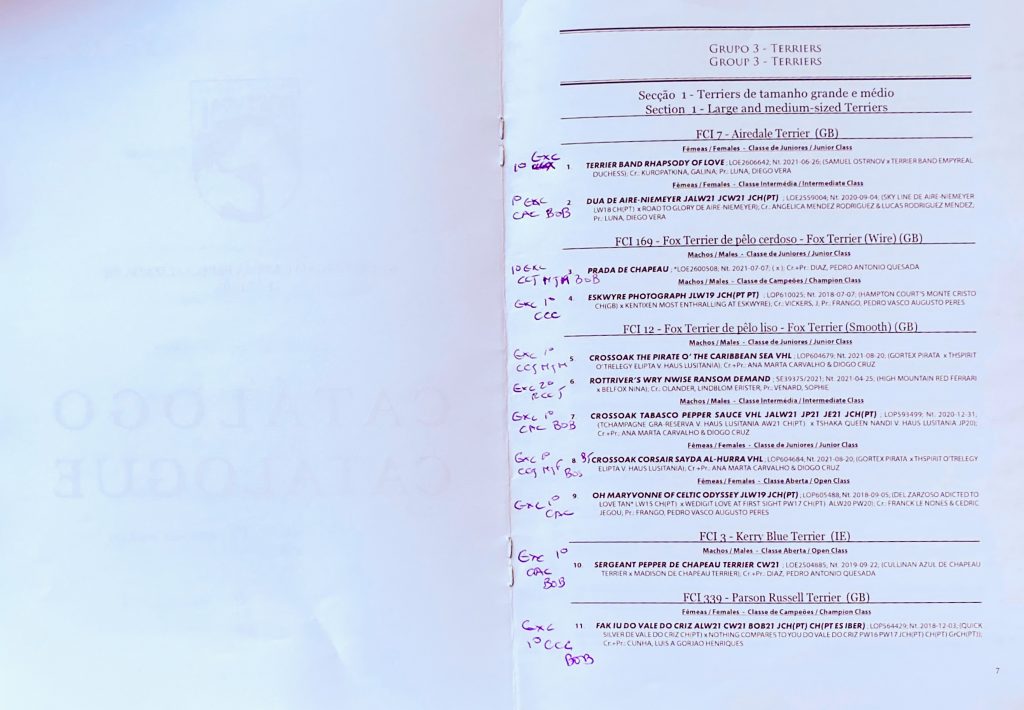 GRUPO 3 - TERRIERS
GROUP 3 - TERRIERS
Secção 1 - Terriers de tamanho grande e médio
Section 1 - Large and medium-sized Terriers
FCI 7 - Airedale Terrier (GB)
Fêmeas / Females - Classe de Juniores / Junior Class
Exc
1º
1. TERRIER BAND RHAPSODY OF LOVE ; LOE2606642; Nt. 2021-06-26; (SAMUEL OSTIRNOV x TERRIER BAND EMPYREAL
DUCHESS); Cr.: KUROPATKINA, GALINA; Pr.: LUNA, DIEGO VERA
Fêmeas / Females - Classe Intermédia / Intermediate Class
1º Exc
CAC BOB
2. DUA DE AIRE-NIEMEYER JALW21 JCW21 JCH(PT) ; LOE2559004; Nt. 2020-09-04; (SKY LINE DE AIRE-NIEMEYER
LW18 CH(PT) x ROAD TO GLORY DE AIRE-NIEMEYER); Cr.: ANGELICA MENDEZ RODRIGUEZ & LUCAS RODRIGUEZ MENDEZ;
Pr.: LUNA, DIEGO VERA
FCI 169 - Fox Terrier de pêlo cerdoso - Fox Terrier (Wire) (GB)
Machos / Males - Classe de Juniores / Junior Class
1º Exc
CCJ MJM BOB
3. PRADA DE CHAPEAU ; *LOE2600508; Nt. 2021-07-07; ( x ); Cr.+Pr.: DIAZ, PEDRO ANTONIO QUESADA
Machos / Males - Classe de Campeões / Champion Class
Exc 1º
CCC
4. ESKWYRE PHOTOGRAPH JLW19 JCH(PT PT) ; LOP610025; Nt. 2018-07-07; (HAMPTON COURT'S MONTE CRISTO
CH(GB) x KENTIXEN MOST ENTHRALLING AT ESKWYRE); Cr.: VICKERS, J; Pr.: FRANGO, PEDRO VASCO AUGUSTO PERES
FCI 12 - Fox Terrier de pêlo liso - Fox Terrier (Smooth) (GB)
Machos / Males - Classe de Juniores / Junior Class
Exc 1º
CCJ MJM
5. CROSSOAK THE PIRATE O' THE CARIBBEAN SEA VHL ; LOP604679; Nt. 2021-08-20; (GORTEX PIRATA x THSPIRIT
O'TRELEGY ELIPTA V. HAUS LUSITANIA); Cr.+Pr.: ANA MARTA CARVALHO & DIOGO CRUZ
Exc 2º
RCCJ
6. ROTTRIVER'S WRY NWISE RANSOM DEMAND ; SE39375/2021; Nt. 2021-04-25; (HIGH MOUNTAIN RED FERRARI
x BELFOX NINA); Cr.: OLANDER, LINDBLOM ERISTER Pr.: VENARD, SOPHIE
Machos / Males - Classe Intermédia / Intermediate Class
Exc 1º
CAC BOB
7. CROSSOAK TABASCO PEPPER SAUCE VHL JALW21 JP21 JE21 JCH(PT) ; LOP593499; Nt. 2020-12-31;
(TCHAMPAGNE GRA-RESERVA V. HAUS LUSITANIA AW21 CH(PT) x TSHAKA QUEEN NANDI V. HAUS LUSITANIA JP20);
Cr.+Pr.: ANA MARTA CARVALHO & DIOGO CRUZ
Fêmeas / Females - Classe de Juniores / Junior Class
Exc 1º
CCJ MJF BOS
8. CROSSOAK CORSAIR SAYDA AL-HURRA VHL ; LOP604684; Nt. 2021-08-20; (GORTEX PIRATA x THSPIRIT O'TRELEGY
ELIPTA V. HAUS LUSITANIA); Cr.+Pr.: ANA MARTA CARVALHO & DIOGO CRUZ
Fêmeas / Females - Classe Aberta / Open Class
Exc 1º
CAC
9. OH MARYVONNE OF CELTIC ODYSSEY JLW19 JCH(PT) ; LOP605488; Nt. 2018-09-05; (DEL ZARZOSO ADICTED TO
LOVE TAN* LW15 CH(PT) x WEDIGIT LOVE AT FIRST SIGHT PW17 CH(PT) ALW20 PW20); Cr.: FRANCK LE NONES & CEDRIC
JEGOU; Pr.: FRANGO, PEDRO VASCO AUGUSTO PERES
FCI 3 - Kerry Blue Terrier (IE)
Machos / Males - Classe Aberta / Open Class
Exc 1º
CAC
BOB
10. SERGEANT PEPPER DE CHAPEAU TERRIER CW21 ; LOE2504885; Nt. 2019-09-22; (CULLINAN AZUL DE CHAPEAU
TERRIER x MADISON DE CHAPEAU TERRIER); Cr.+Pr.: DIAZ, PEDRO ANTONIO QUESADA
FCI 339 - Parson Russell Terrier (GB)
Fêmeas / Females - Classe de Campeões / Champion Class
Exc
1º CCC
BOB
11. FAK IU DO VALE DO CRIZ ALW21 CW21 BOB21 JCH(PT) CH(PT ES IBER) ; LOP564429; Nt. 2018-12-03; (QUICK
SILVER DE VALE DO CRIZ CH(PT) x NOTHING COMPARES TO YOU DO VALE DO CRIZ PW16 PW17 JCH(PT) CH(PT) GrCH(PT));
Cr.+Pr.: CUNHA, LUIS A GORJAO HENRIQUES
7